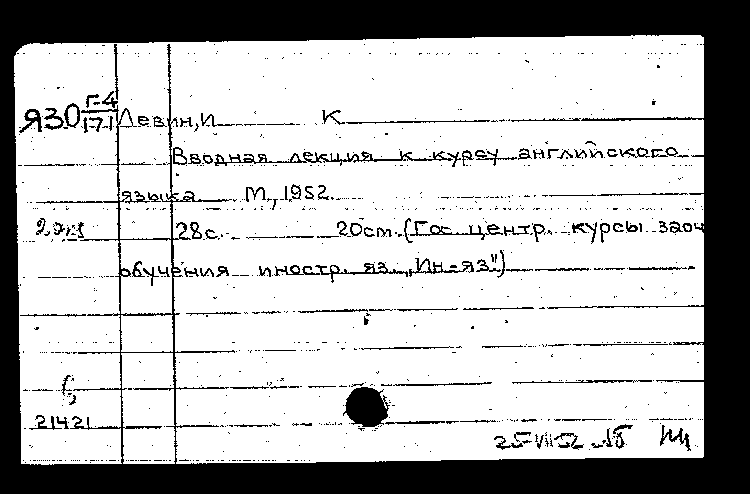 Г-4
ЯЗО 171 Левин, И К
Вводная лекция к курсу английского
языка М., 1952.
2 экз 28с. 20см. (Гос. центр. курсы заоч
обучения иностр. яз. „Ин-яз")
21421
25 VII 52